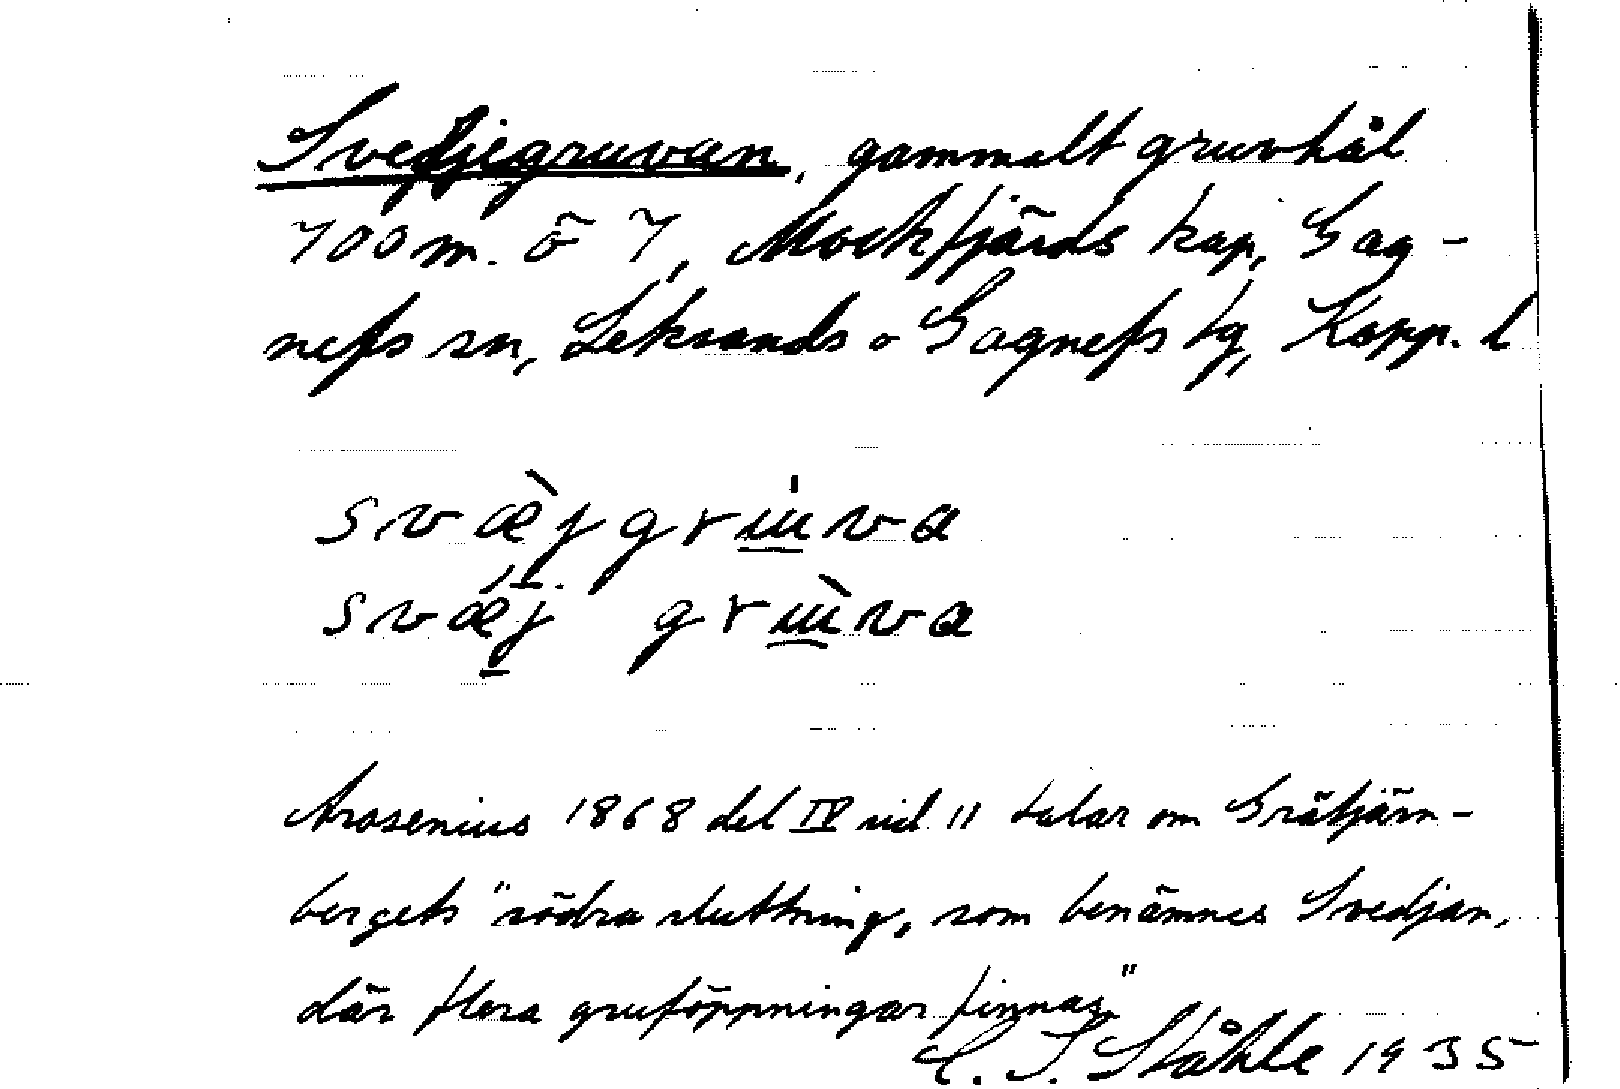 Svedjegruvan, gammalt gruvhål
700 m. ö 7, Mockfjärds kap, Gag-
nefs sn, Leksands o Gagnefs tg, Kopp. l
svæ̀jgrɯva
svæj grɯ̀va
Arosenius 1868 del IV sid 11 talar om Gråtjärn-
bergets "södra sluttning, som benämnes Svedjan,
där flera gruföppningar finnas"
C. I. Ståhle 1935